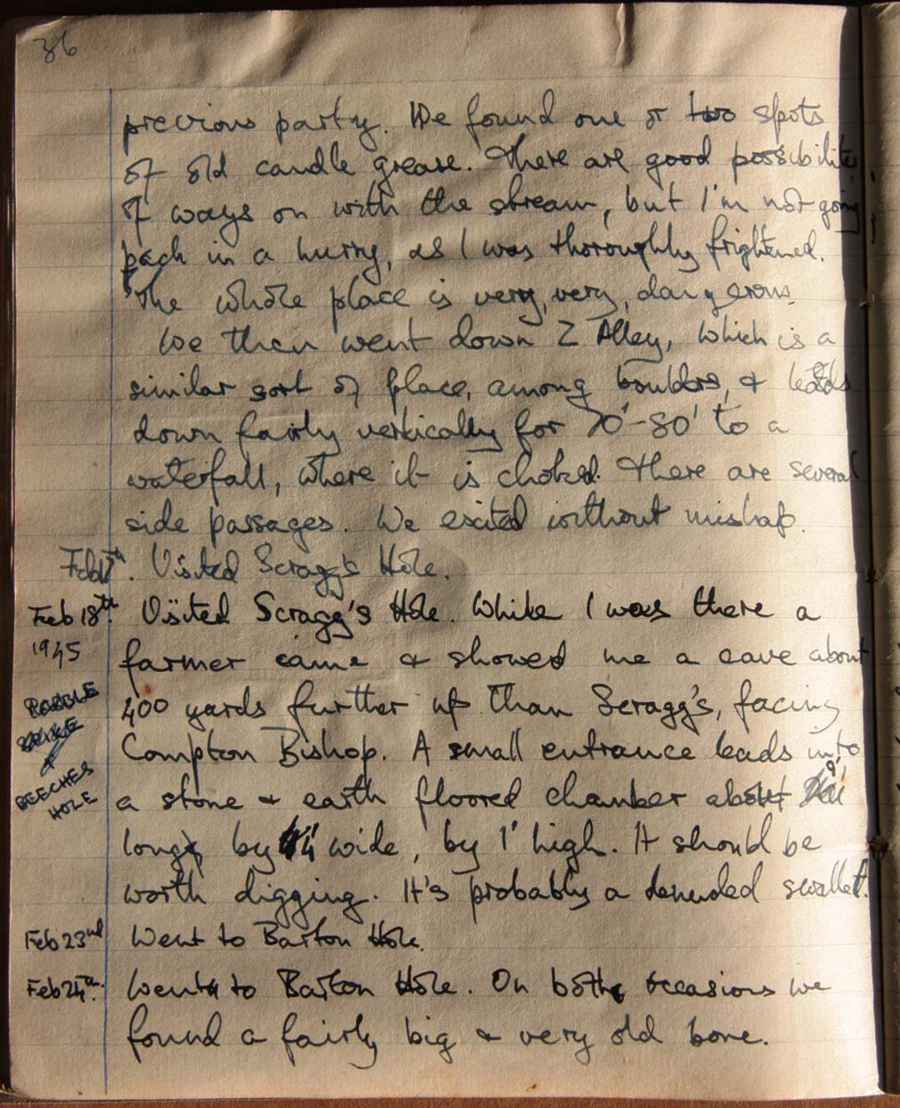 36
previous party. We found one or two spots
of old candle grease. There are good possibilities
of ways on with the stream, but I'm not going
back in a hurry, as I was thoroughly frightened.
The whole place is very, very, dangerous.
We then went down Z Alley, which is a
similar sort of place, among boulders, & leads
down fairly vertically for 70'-80' to a
waterfall, where it is choked. There are several
side passages. We exited without mishap.
Visited Scragg's Hole.
Feb 18th. Visited Scragg's Hole. While I was there a
1945 farmer came & showed me a cave about
400 yards further up than Scragg's, facing
Compton Bishop. A small entrance leads into
BEECHES HOLE a stone & earth floored chamber about 9'
long by 4' wide, by 1' high. It should be
worth digging. It's probably a denuded swallet.
Feb 23rd Went to Barton Hole.
Feb 24th. Went to Barton Hole. On both occasions we
found a fairly big & very old bone.